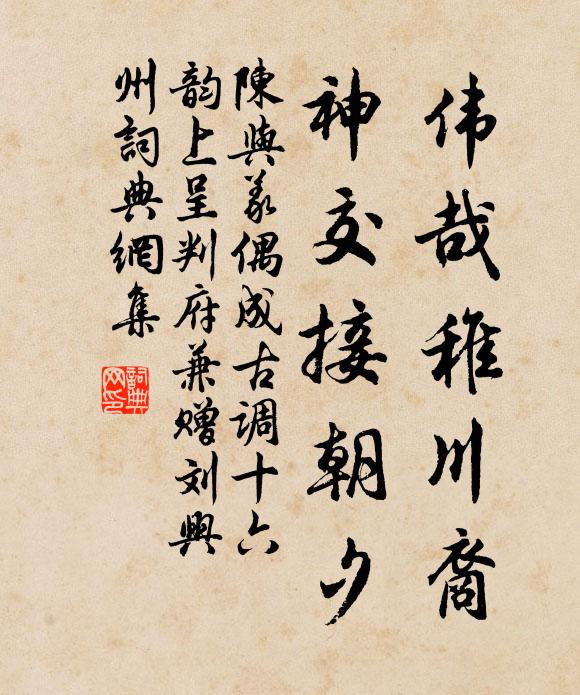 伟哉稚川裔
神交接朝夕
陳與義偶成古調十六
韵上呈判府兼赠刘興
州詞典網集
詞典网印